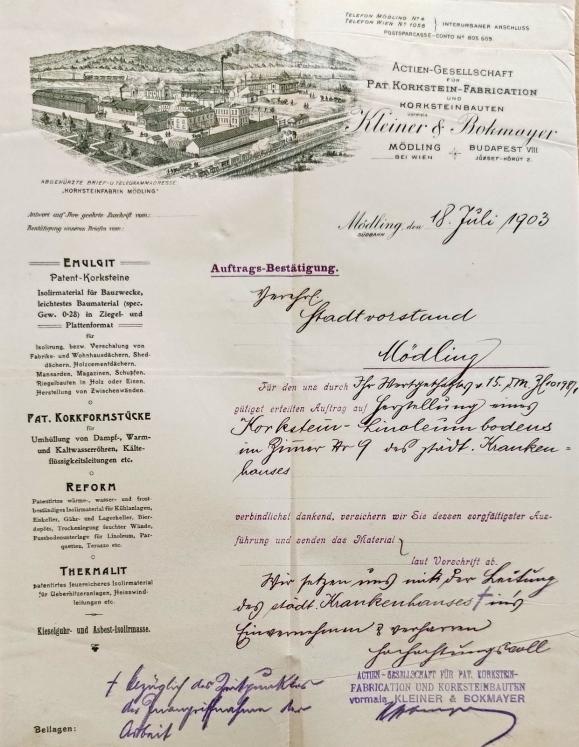 TELEFON MÖDLING Nº 4
TELEFON WIEN Nº 1058
INTERURBANER ANSCHLUSS
POSTSPARCASSE-CONTO Nº 805.605.
ACTIEN-GESELLSCHAFT
FÜR
PAT. KORKSTEIN-FABRICATION
UND
KORKSTEINBAUTEN
VORMALS
Kleiner & Bokmayer
MÖDLING
BEI WIEN
BUDAPEST VIII
JÓZSEF-KÖRÚT 2.
ABGEKÜRZTE BRIEF- U. TELEGRAMMADRESSE
"KORKSTEINFABRIK MÖDLING"
Antwort auf Ihre geehrte Zuschrift vom:
Bestätigung unseres Briefes vom:
Mödling, den 18. Juli 1903
SÜDBAHN
EMULGIT
Patent-Korksteine
Isolirmaterial für Bauzwecke,
leichtestes Baumaterial (spec.
Gew. 0·28) in Ziegel- und
Plattenformat
für
Isolirung, bezw. Verschalung von
Fabriks- und Wohnhausdächern, Shed-
dächern, Holzcementdächern,
Mansarden, Magazinen, Schupfen,
Riegelbauten in Holz oder Eisen,
Herstellung von Zwischenwänden.
PAT. KORKFORMSTÜCKE
für
Umhüllung von Dampf-, Warm-
und Kaltwasserröhren, Kälte-
flüssigkeitsleitungen etc.
REFORM
Patentirtes wärme-, wasser- und frost-
beständiges Isolirmaterial für Kühlanlagen,
Eiskeller, Gähr- und Lagerkeller, Bier-
depôts, Trockenlegung feuchter Wände,
Fussbodenunterlage für Linoleum, Par-
quetten, Terazzo etc.
THERMALIT
patentirtes feuersicheres Isolirmaterial
für Ueberhitzeranlagen, Heisswind-
leitungen etc.
Kieselguhr- und Asbest-Isolirmasse.
Auftrags-Bestätigung.
Verehrl.
Stadtvorstand
Mödling
Für den uns durch Ihr v 15. Z
gütigst erteilten Auftrag auf Herstellung eines
Korkstein-Linoleumbodens
im Zimmer Nr 9 des städt. Kranken-
hauses
verbindlichst dankend, versichern wir Sie dessen sorgfältigster Aus-
führung und senden das Material
laut Vorschrift ab.
Wir setzen uns mit der Leitung
des städt. Krankenhauses † ins
Einvernehmen & verharren
Hochachtungsvoll
ACTIEN-GESELLSCHAFT FÜR PAT. KORKSTEIN-
FABRICATION UND KORKSTEINBAUTEN
vormals KLEINER & BOKMAYER
† bezüglich des Zeitpunktes
der Inangriffnahme der
Arbeit
Beilagen: